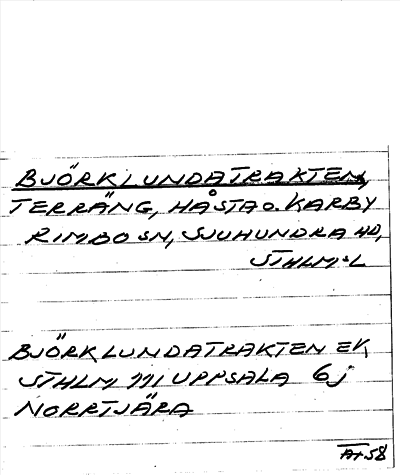 BJÖRKLUNDATRAKTEN,
TERRÄNG, HÅSTA O. KARBY
RIMBO SN, SJUHUNDRA HD,
STHLM:S L
BJÖRKLUNDATRAKTEN EK,
STHLM 111 UPPSALA 6j
NORRTJÄRA
AT 58